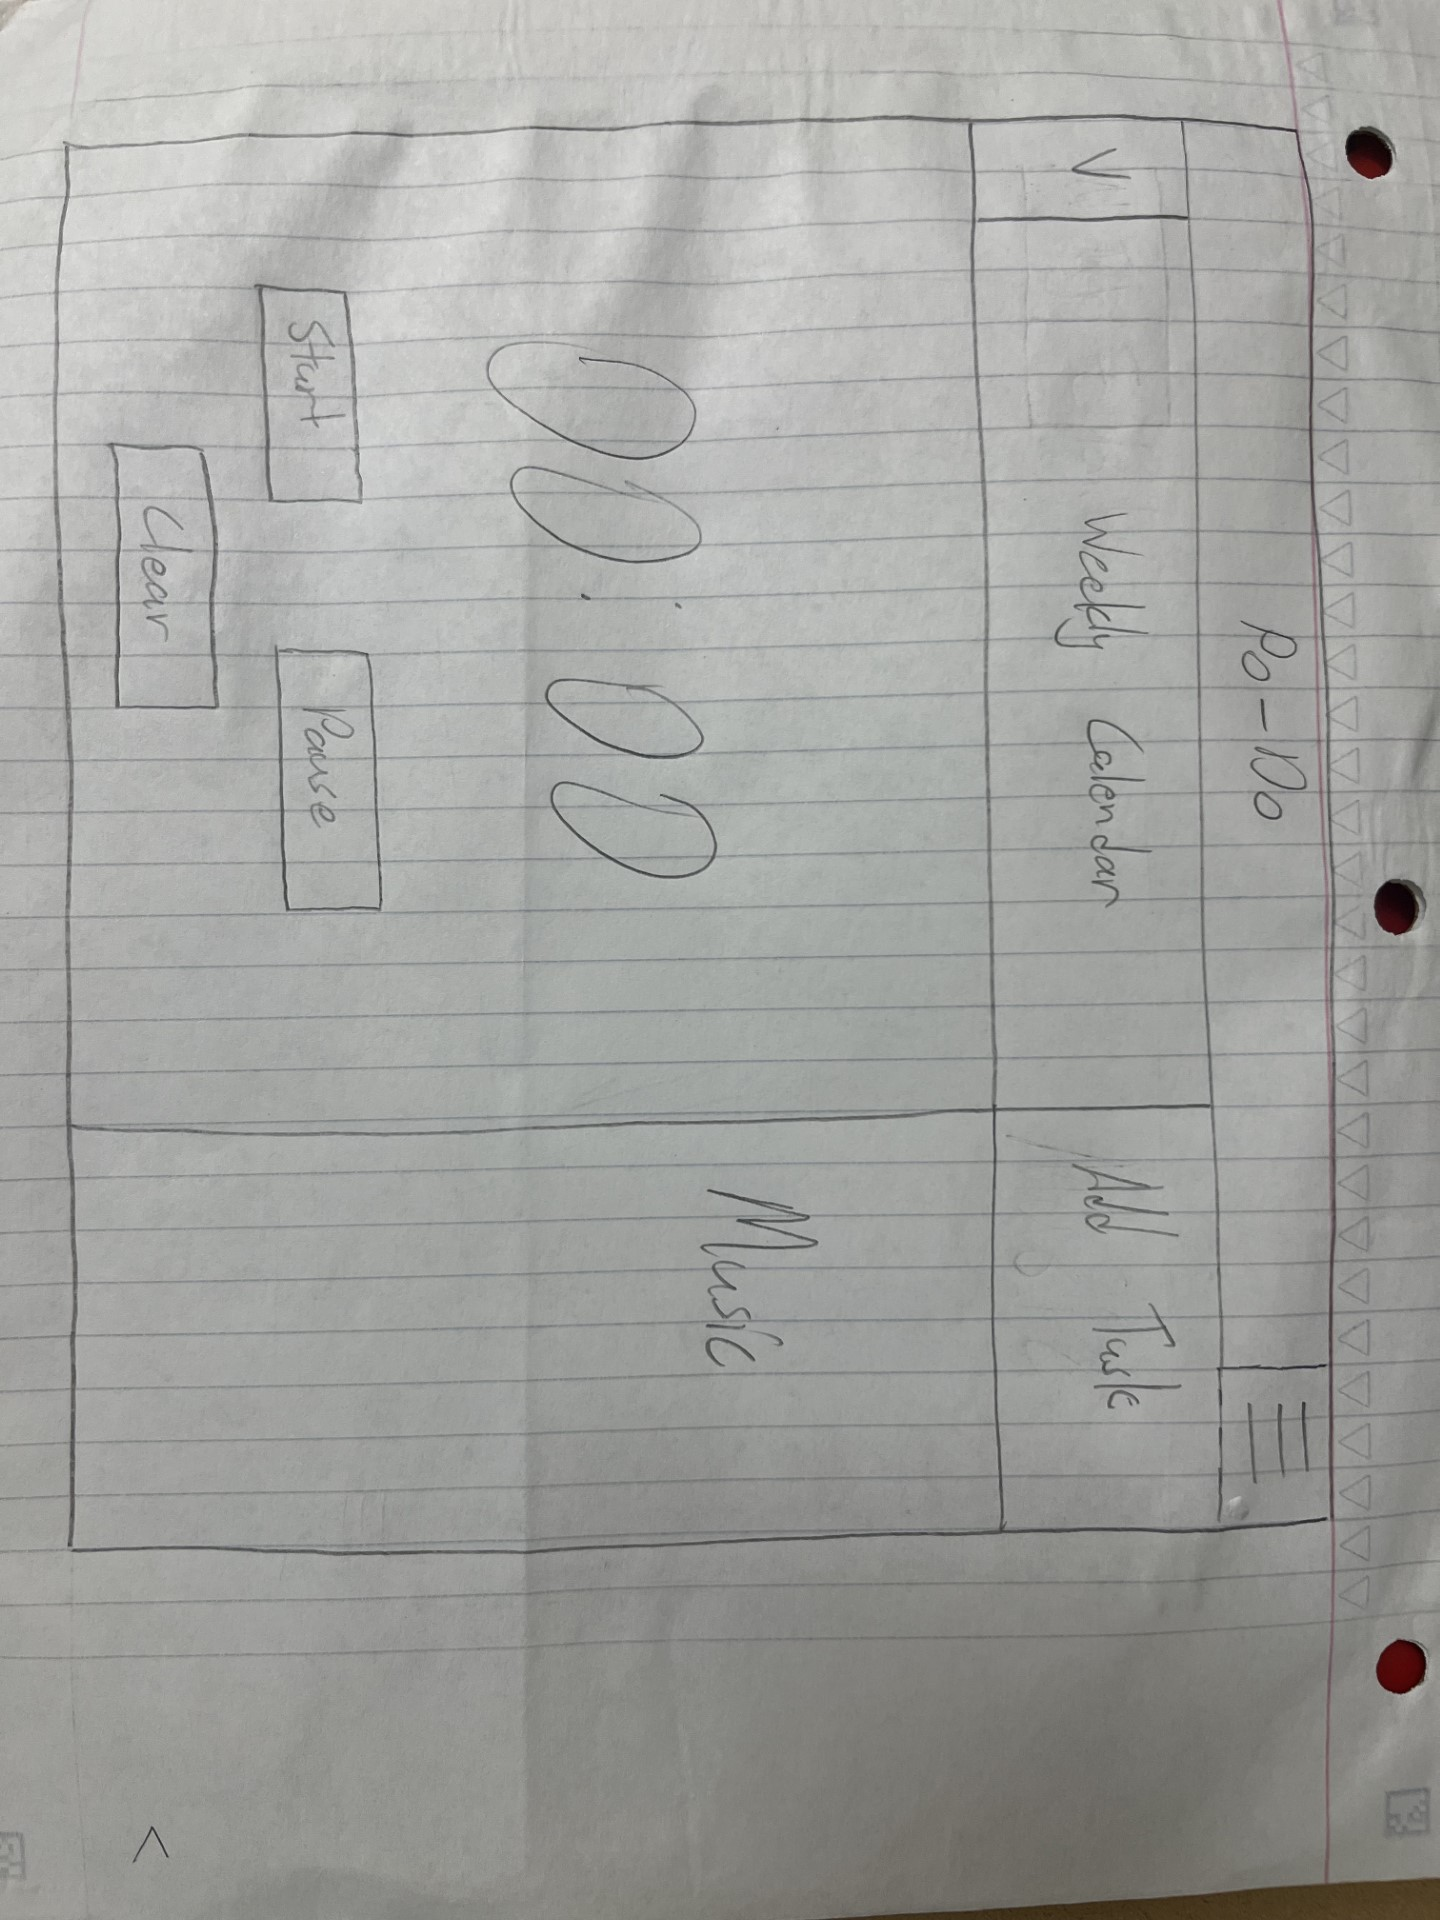 Po-Do
V
Weekly Calendar
Add Task
00:00
Music
Start
Pause
Clear